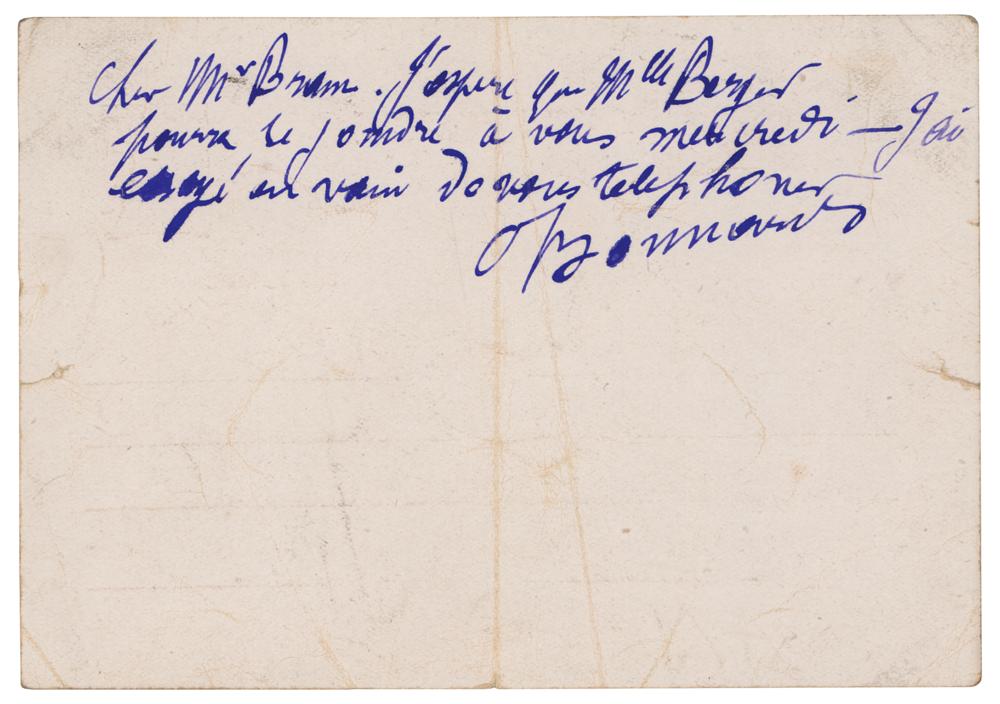 Cher Mr Bram. J'espere que Mlle Berger
pourra se joindre à vous mercredi — J'ai
essayé en vain de vous telephoner
PBonnard